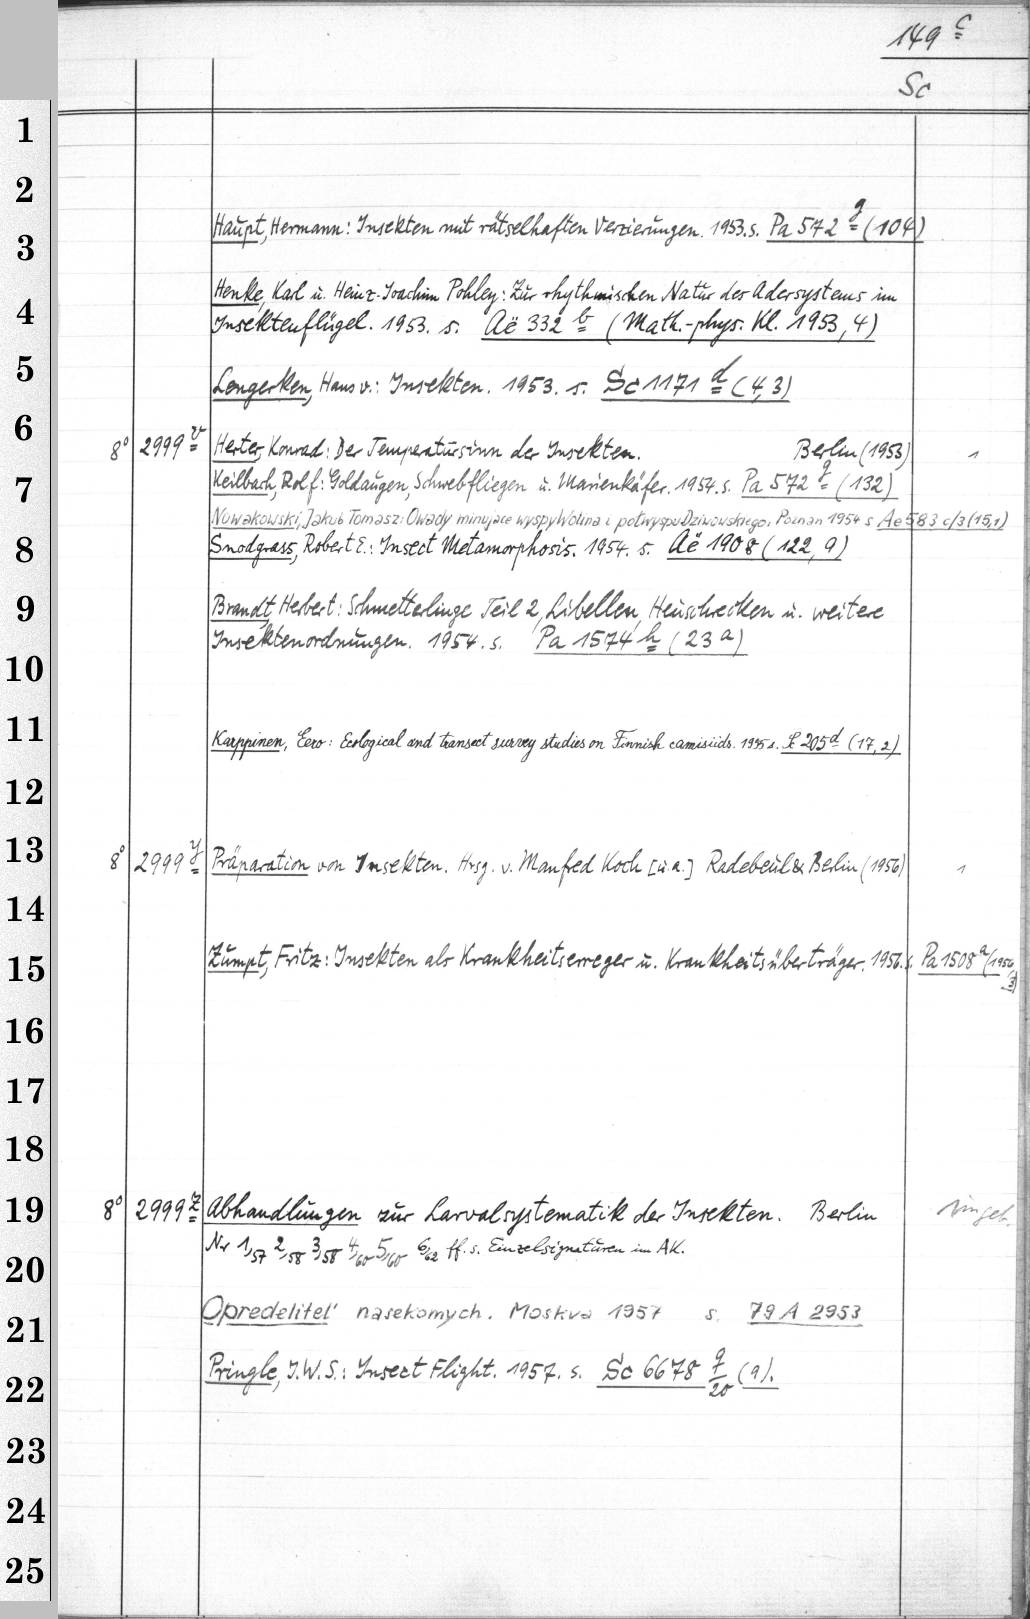 149 c
Sc
1
2
3
4
5
6
7
8
9
10
11
12
13
14
15
16
17
18
19
20
21
22
23
24
25
Haupt, Hermann: Insekten mit rätselhaften Verzierungen. 1953. s. Pa 572 g (104)
Henke, Karl u. Heinz-Joachim Pohley: Zur rhythmischen Natur des Adersystems im
Insektenflügel. 1953. s. Aë 332 b (Math.-phys. Kl. 1953, 4)
Lengerken, Hans v.: Insekten. 1953. s. Sc 1171 d (4,3)
8° 2999 v Herter, Konrad: Der Temperatursinn der Insekten. Berlin (1953) 1
Keilbach, Rolf: Goldaugen, Schwebfliegen u. Marienkäfer. 1954. s. Pa 572 g (132)
Nowakowski, Jakub Tomasz: Owady minujące wyspy Wolina i półwyspu Dziwowskiego. Poznań 1954 s Ae 583 c/3 (15,1)
Snodgrass, Robert E.: Insect Metamorphosis. 1954. s. Aë 1908 (122, 9)
Brandt, Herbert: Schmetterlinge Teil 2, Libellen, Heuschrecken u. weitere
Insektenordnungen. 1954. s. Pa 1574 h (23 a)
Karppinen, Eero: Ecological and transect survey studies on Finnish camisiids. 1955 s. Sc 205 d (17, 2)
8° 2999 y Präparation von Insekten. Hrsg. v. Manfred Koch [u.a.] Radebeul & Berlin (1956) 1
Zumpt, Fritz: Insekten als Krankheitserreger u. Krankheitsüberträger. 1956. s. Pa 1508 a (1956, 3)
8° 2999 z Abhandlungen zur Larvalsystematik der Insekten. Berlin
Nr 1/57 2/58 3/58 4/60 5/60 6/62 ff. s. Einzelsignaturen im AK.
Opredelitel' nasekomych. Moskva 1957 s. 79 A 2953
Pringle, J.W.S.: Insect Flight. 1957. s. Sc 6678 g/20 (9).